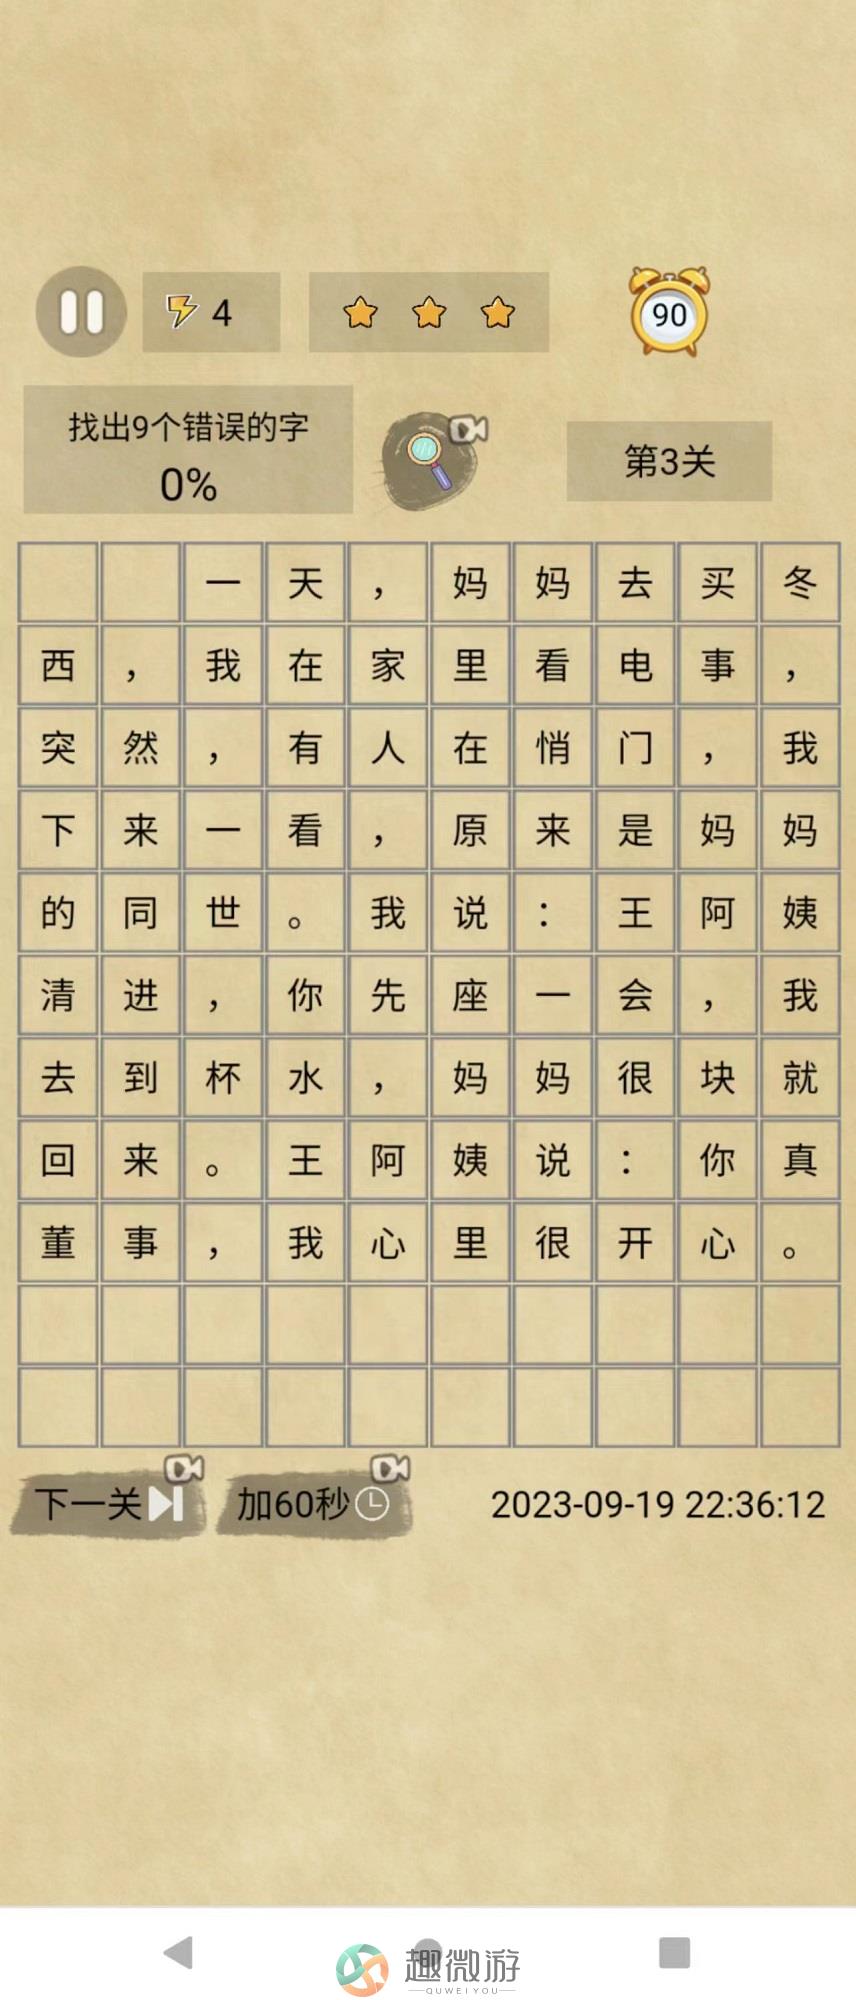 4
90
找出9个错误的字
0%
第3关
一天，妈妈去买冬
西，我在家里看电事，
突然，有人在悄门，我
下来一看，原来是妈妈
的同世。我说：王阿姨
清进，你先座一会，我
去到杯水，妈妈很块就
回来。王阿姨说：你真
董事，我心里很开心。
下一关
加60秒
2023-09-19 22:36:12
趣微游
QUWEIYOU